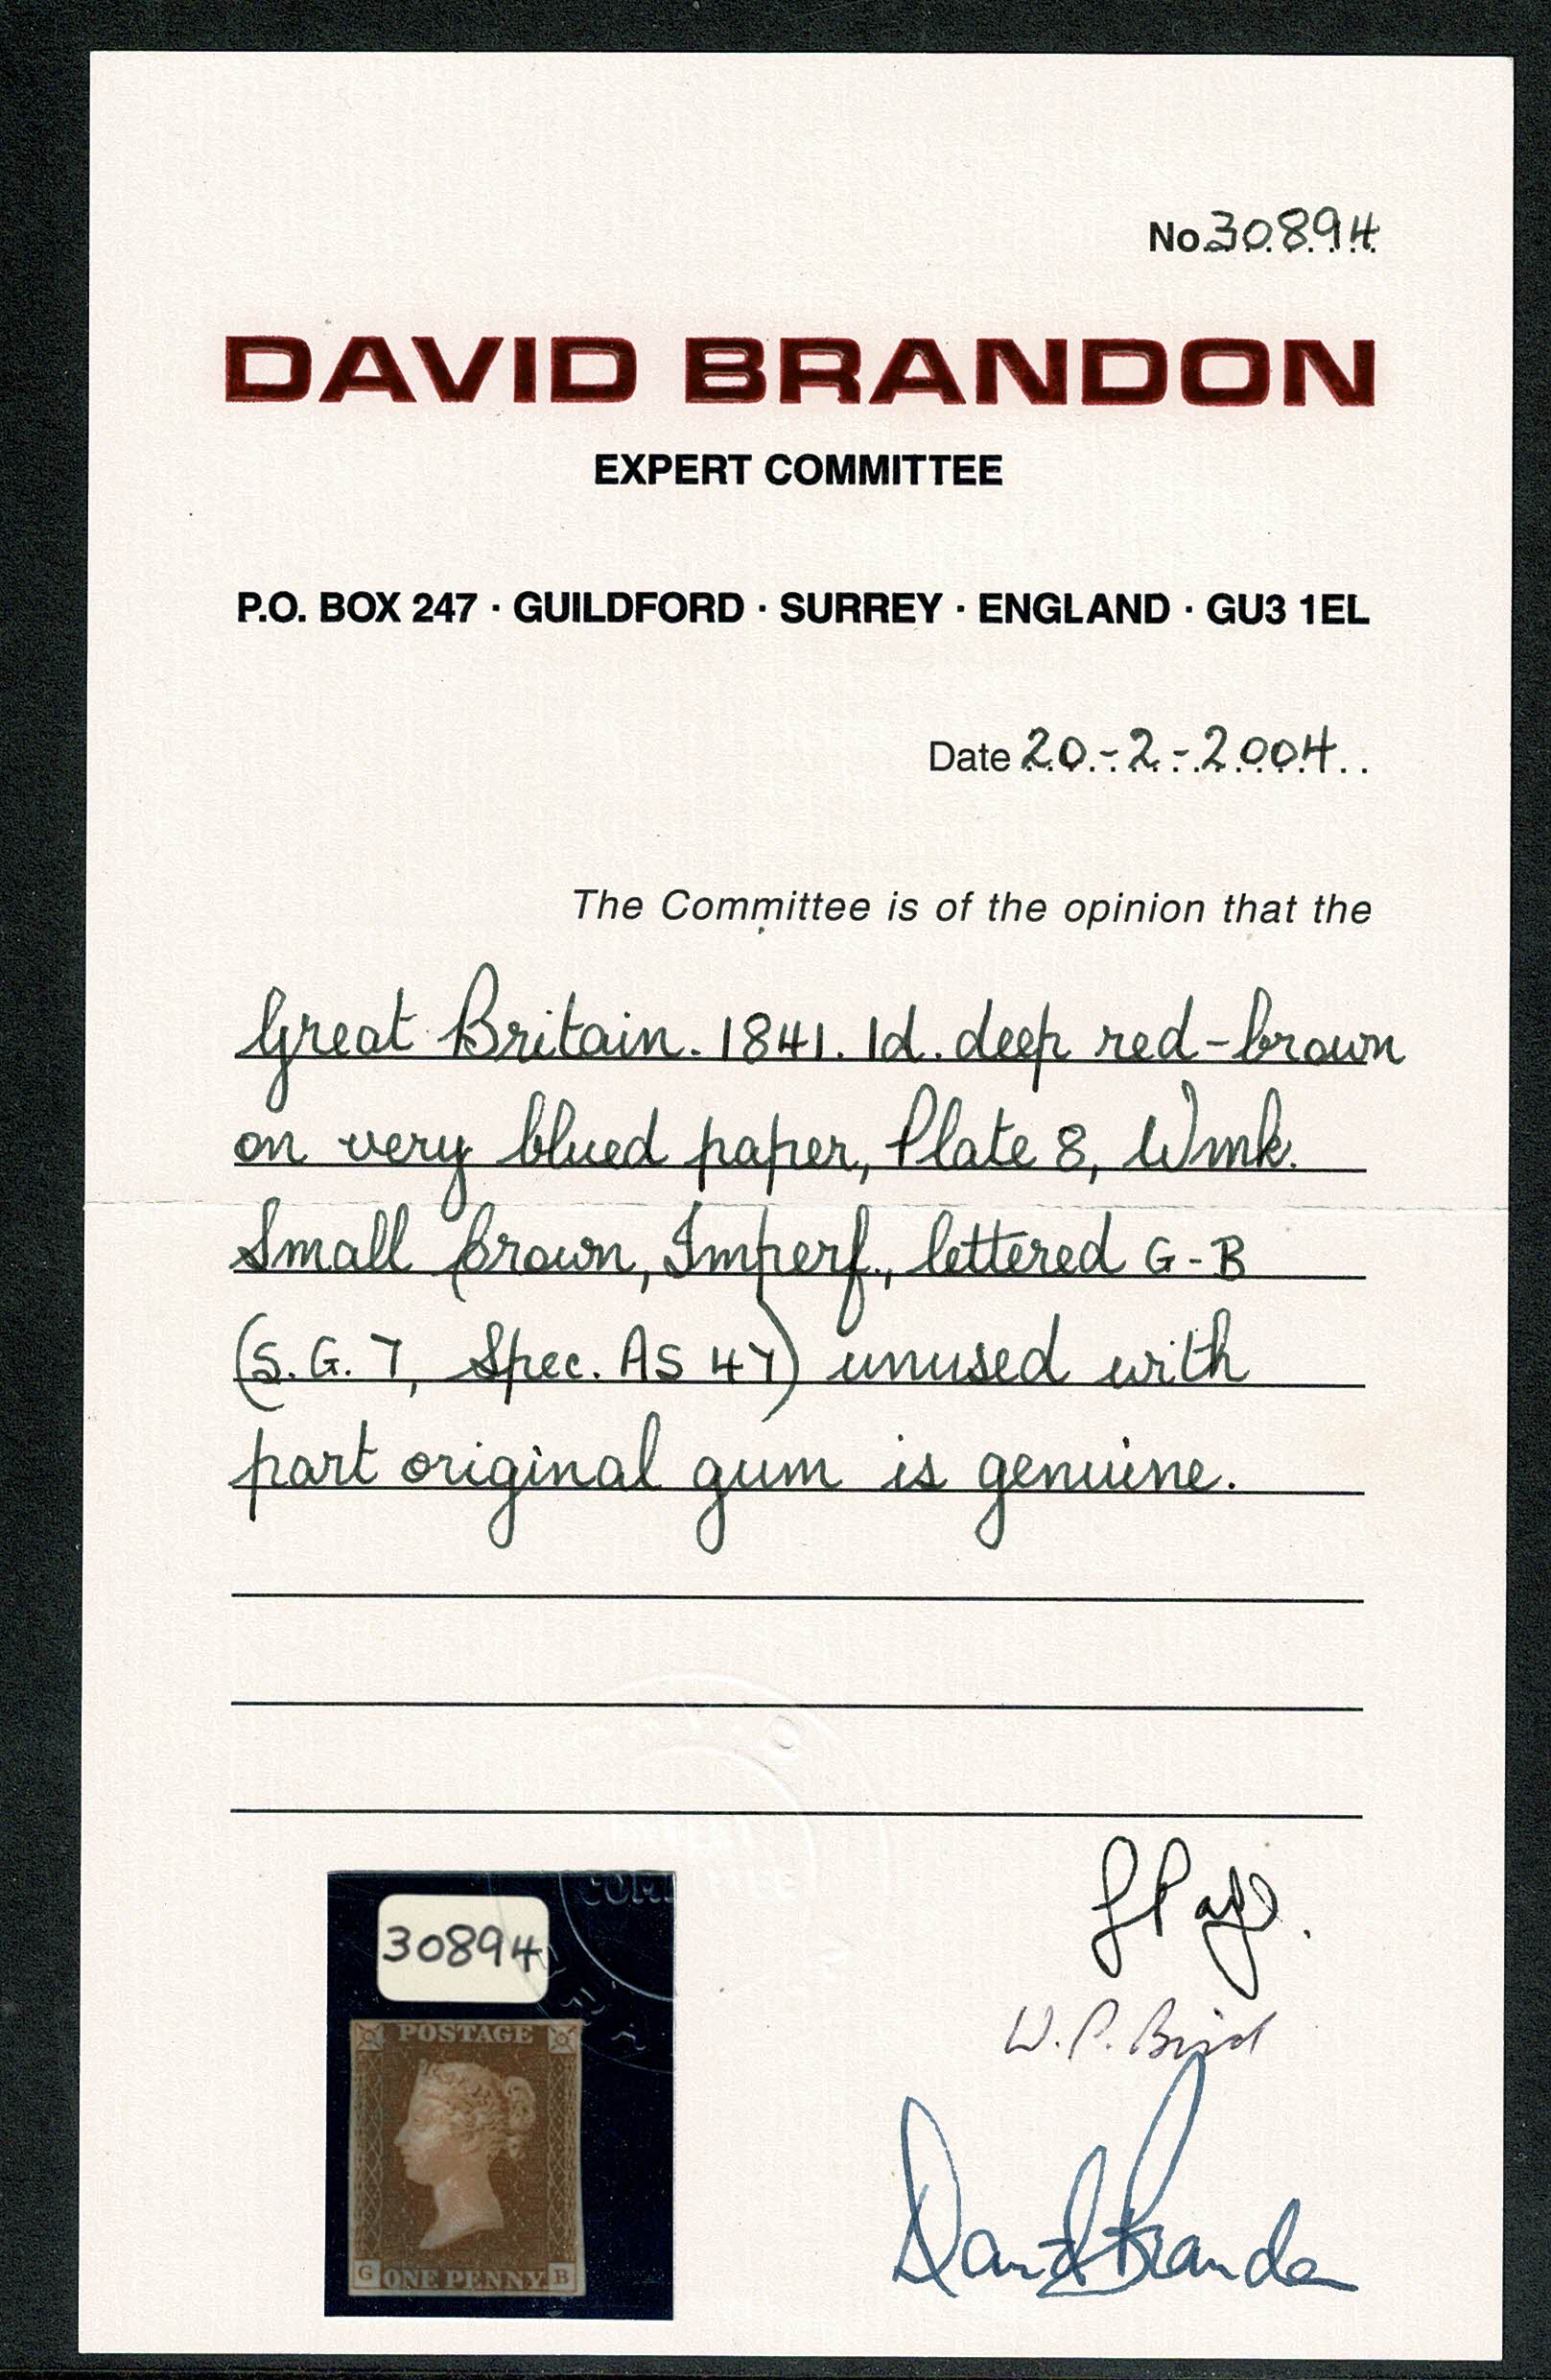 No. 30894
DAVID BRANDON
EXPERT COMMITTEE
P.O. BOX 247 · GUILDFORD · SURREY · ENGLAND · GU3 1EL
Date 20.-2-2004..
The Committee is of the opinion that the
Great Britain. 1841. 1d. deep red-brown
on very blued paper, Plate 8, Wmk.
Small Crown, Imperf., lettered G-B
(S.G. 7, Spec. AS 47) unused with
part original gum is genuine.
30894
POSTAGE
G ONE PENNY B
W.P. Bird
David Brandon